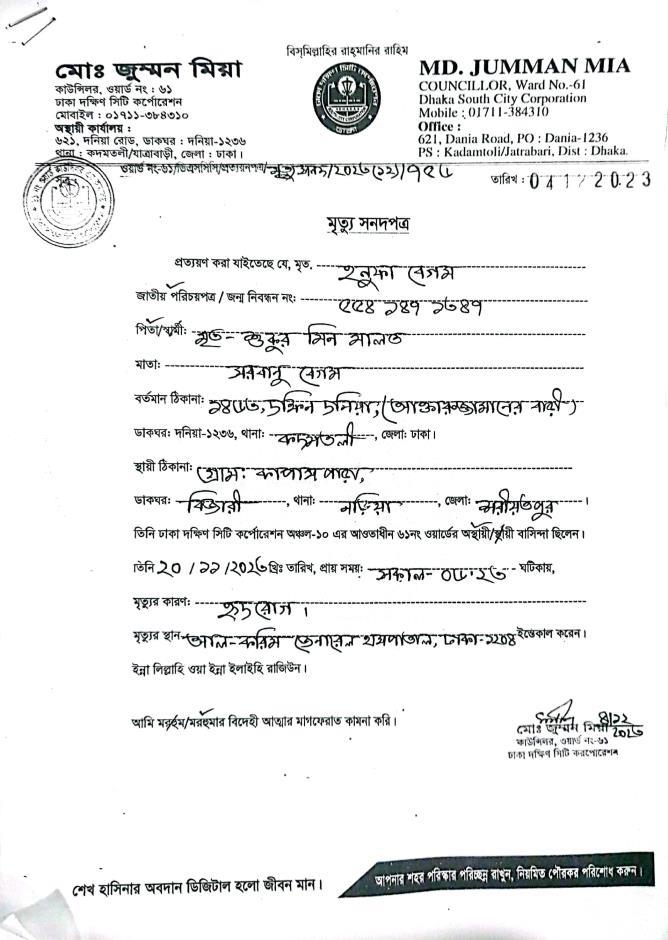 বিস্‌মিল্লাহির রাহ্‌মানির রাহিম
মোঃ জুম্মন মিয়া
কাউন্সিলর, ওয়ার্ড নং : ৬১
ঢাকা দক্ষিণ সিটি কর্পোরেশন
মোবাইল : ০১৭১১-৩৮৪৩১০
অস্থায়ী কার্যালয় :
৬২১, দনিয়া রোড, ডাকঘর : দনিয়া-১২৩৬
থানা : কদমতলী/যাত্রাবাড়ী, জেলা : ঢাকা।
MD. JUMMAN MIA
COUNCILLOR, Ward No.-61
Dhaka South City Corporation
Mobile : 01711-384310
Office :
621, Dania Road, PO : Dania-1236
PS : Kadamtoli/Jatrabari, Dist : Dhaka.
ওয়ার্ড নং-৬১/ডিএসসিসি/প্রত্যয়নপত্র/মৃত্যু সনদ/২০২৩(১২)/৭৫৮
তারিখ : 04 12 2023
মৃত্যু সনদপত্র
প্রত্যয়ণ করা যাইতেছে যে, মৃত, হনুফা বেগম
জাতীয় পরিচয়পত্র / জন্ম নিবন্ধন নং: ৫৫৪ ১৪৭ ১৩৪৭
পিতা/স্বামী: মৃত- শুকুর মিন মালত
মাতা: সরবানু বেগম
বর্তমান ঠিকানা: ১৪৮৩, দক্ষিন দনিয়া, (আক্তারুজ্জামানের বাড়ী)
ডাকঘর: দনিয়া-১২৩৬, থানা: কদমতলী, জেলা: ঢাকা।
স্থায়ী ঠিকানা: গ্রাম: কাপাস পাড়া,
ডাকঘর: বিঝারী, থানা: নড়িয়া, জেলা: শরীয়তপুর।
তিনি ঢাকা দক্ষিণ সিটি কর্পোরেশন অঞ্চল-১০ এর আওতাধীন ৬১নং ওয়ার্ডের অস্থায়ী/স্থায়ী বাসিন্দা ছিলেন।
তিনি ২০/১১/২০২৩ খ্রিঃ তারিখ, প্রায় সময়: সকাল- ০৮:২৩ ঘটিকায়,
মৃত্যুর কারণ: হৃদরোগ।
মৃত্যুর স্থান আল-করিম জেনারেল হাসপাতাল, ঢাকা-১২০৪ ইন্তেকাল করেন।
ইন্না লিল্লাহি ওয়া ইন্না ইলাইহি রাজিউন।
আমি মরহুম/মরহুমার বিদেহী আত্মার মাগফেরাত কামনা করি।
৪/১২
২০২৩
মোঃ জুম্মন মিয়া
কাউন্সিলর, ওয়ার্ড নং-৬১
ঢাকা দক্ষিণ সিটি করপোরেশন
শেখ হাসিনার অবদান ডিজিটাল হলো জীবন মান।
আপনার শহর পরিস্কার পরিচ্ছন্ন রাখুন, নিয়মিত পৌরকর পরিশোধ করুন।